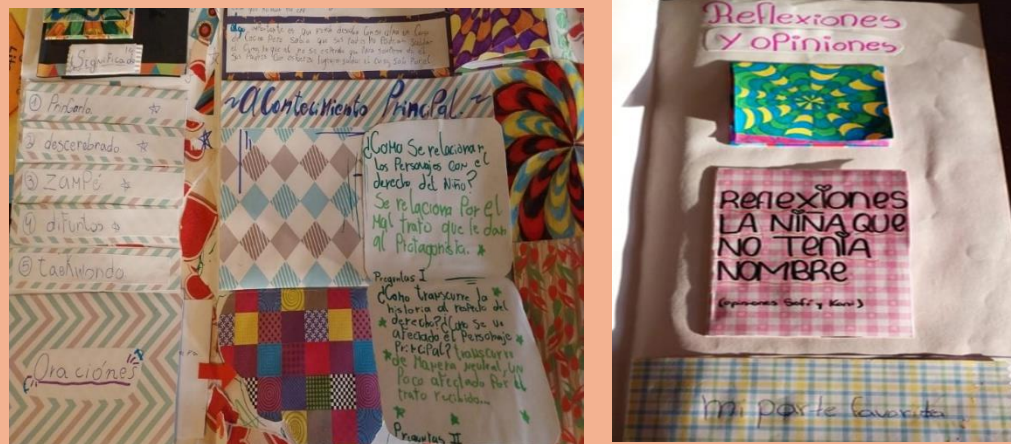 Significado
① Primaria
② descerebrado
③ Zampé
④ difuntos
⑤ taekwondo
Oraciones
~Acontecimiento Principal~
¿Como Se relacionan
los Personajes con el
derecho del Niño?
Se relaciona Por el
Mal trato que le dan
al Protagonista.
Preguntas I
¿Como transcurre la
historia al respeto del
derecho? ¿Como Se ve
afectado el Personaje
Principal? transcurre
de Manera neutral, UN
Poco afectado Por el
trato recibido...
Preguntas II
Reflexiones
Y oPiniones
REFLEXIONES
LA NIÑA QUE
NO TENIA
NOMBRE
(opiniones Sofi y Kari)
mi parte favorita